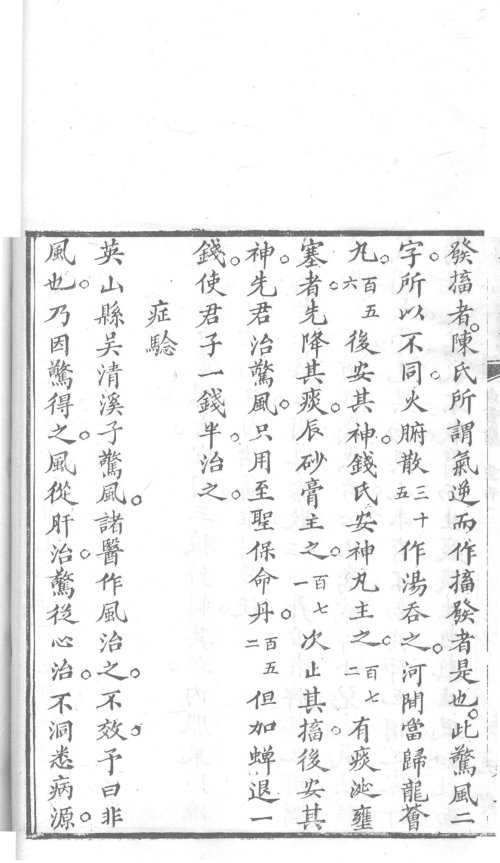 發搐者陳氏所謂氣逆而作搐發者是也此驚風二
字所以不同火腑散三十五作湯吞之河間當歸龍薈
丸百五六後安其神錢氏安神丸主之百七二有痰涎壅
塞者先降其痰辰砂膏主之百七一次止其搐後安其
神先君治驚風只用至聖保命丹百五二但加蟬退一
錢使君子一錢半治之
症驗
英山縣吳清溪子驚風諸醫作風治之不效予曰非
風也乃因驚得之風從肝治驚從心治不洞悉病源